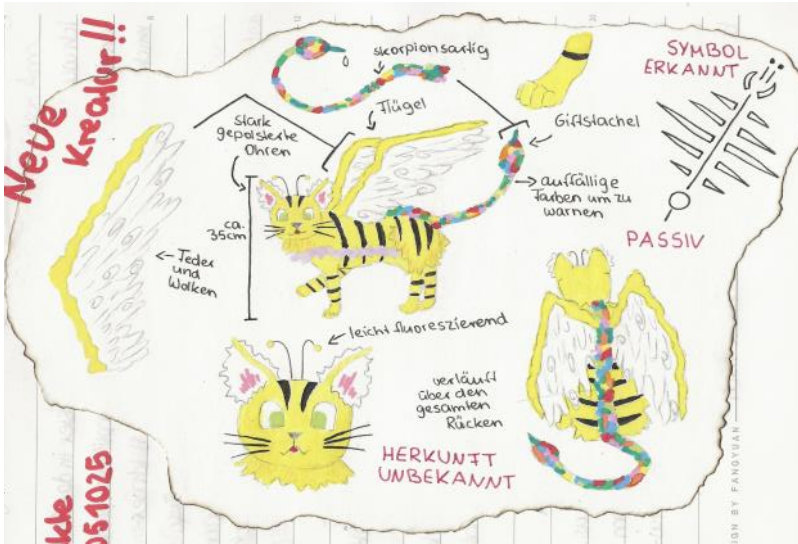 Neue
Kreatur!!
skorpionsartig
SYMBOL
ERKANNT
Flügel
stark
gepolsterte
Ohren
Giftstachel
auffällige
Farben um zu
warnen
ca.
35cm
PASSIV
Feder
und
Wolken
leicht fluoreszierend
verläuft
über den
gesamten
Rücken
HERKUNFT
UNBEKANNT
kte
051025
IGN BY FANGYUAN